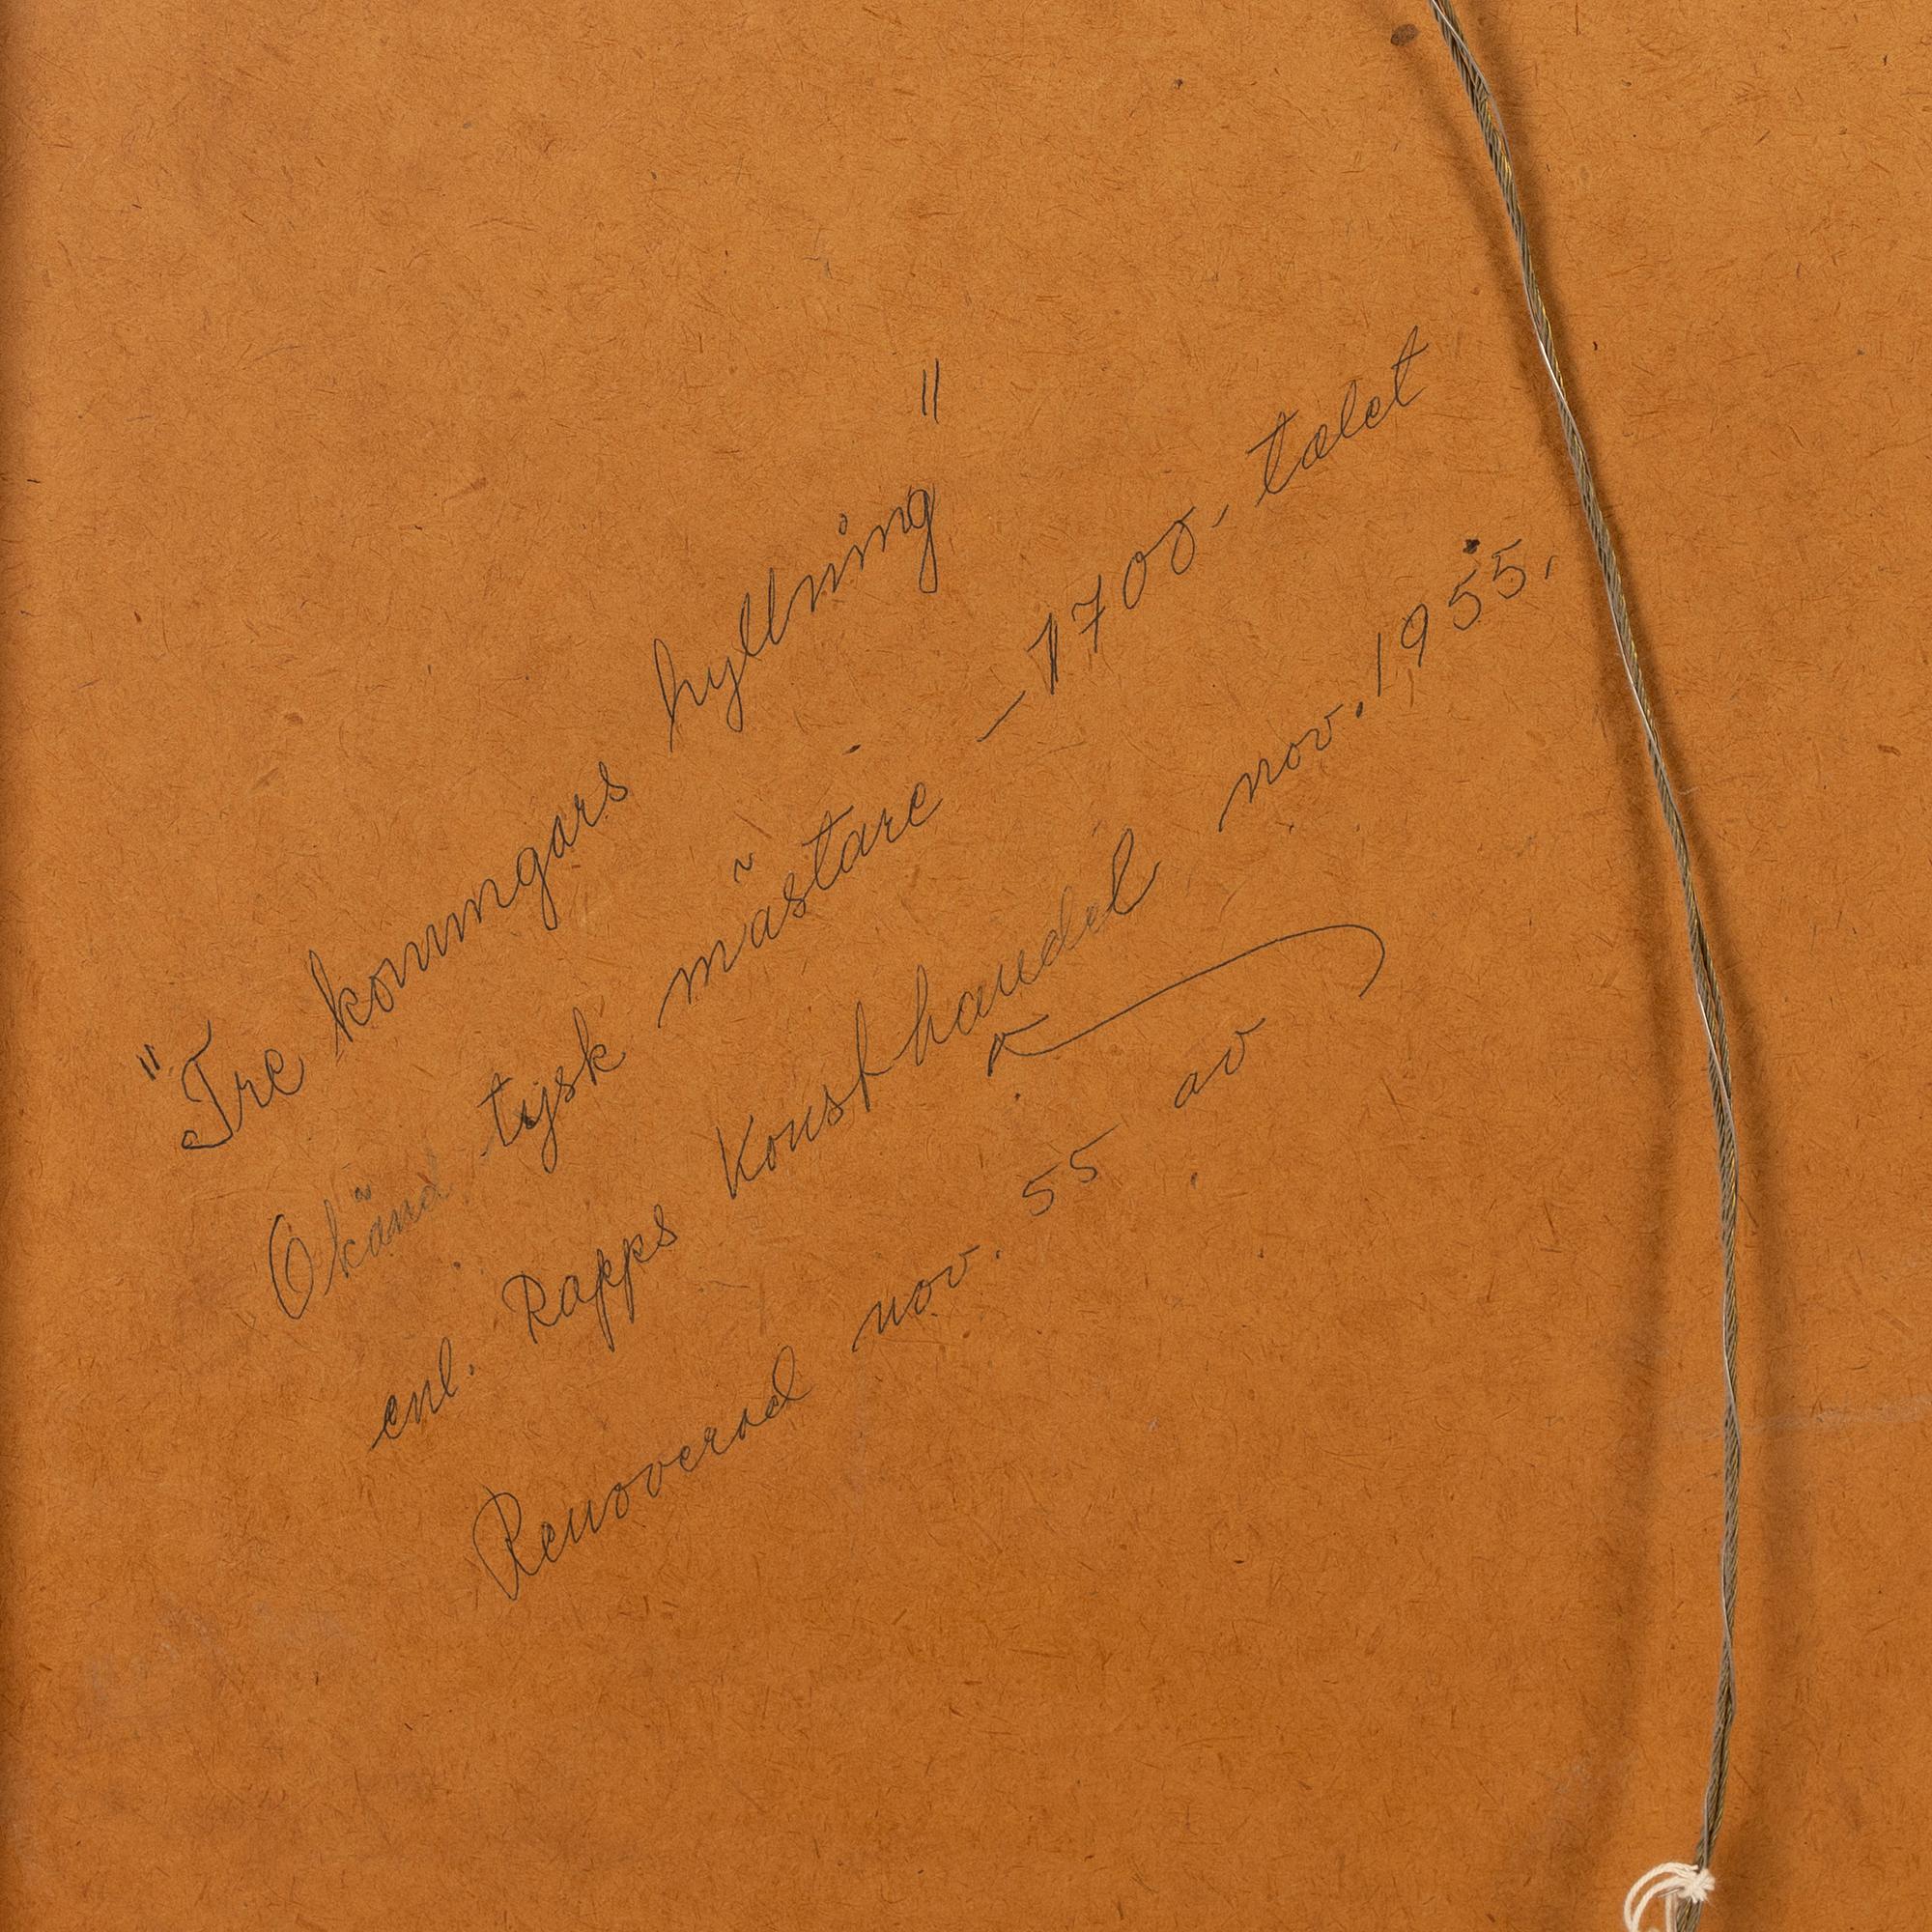 "Tre konungars hyllning"
Okänd tysk mästare – 1700-talet
enl. Rapps Konsthandel nov. 1955.
Renoverad nov. 55 av